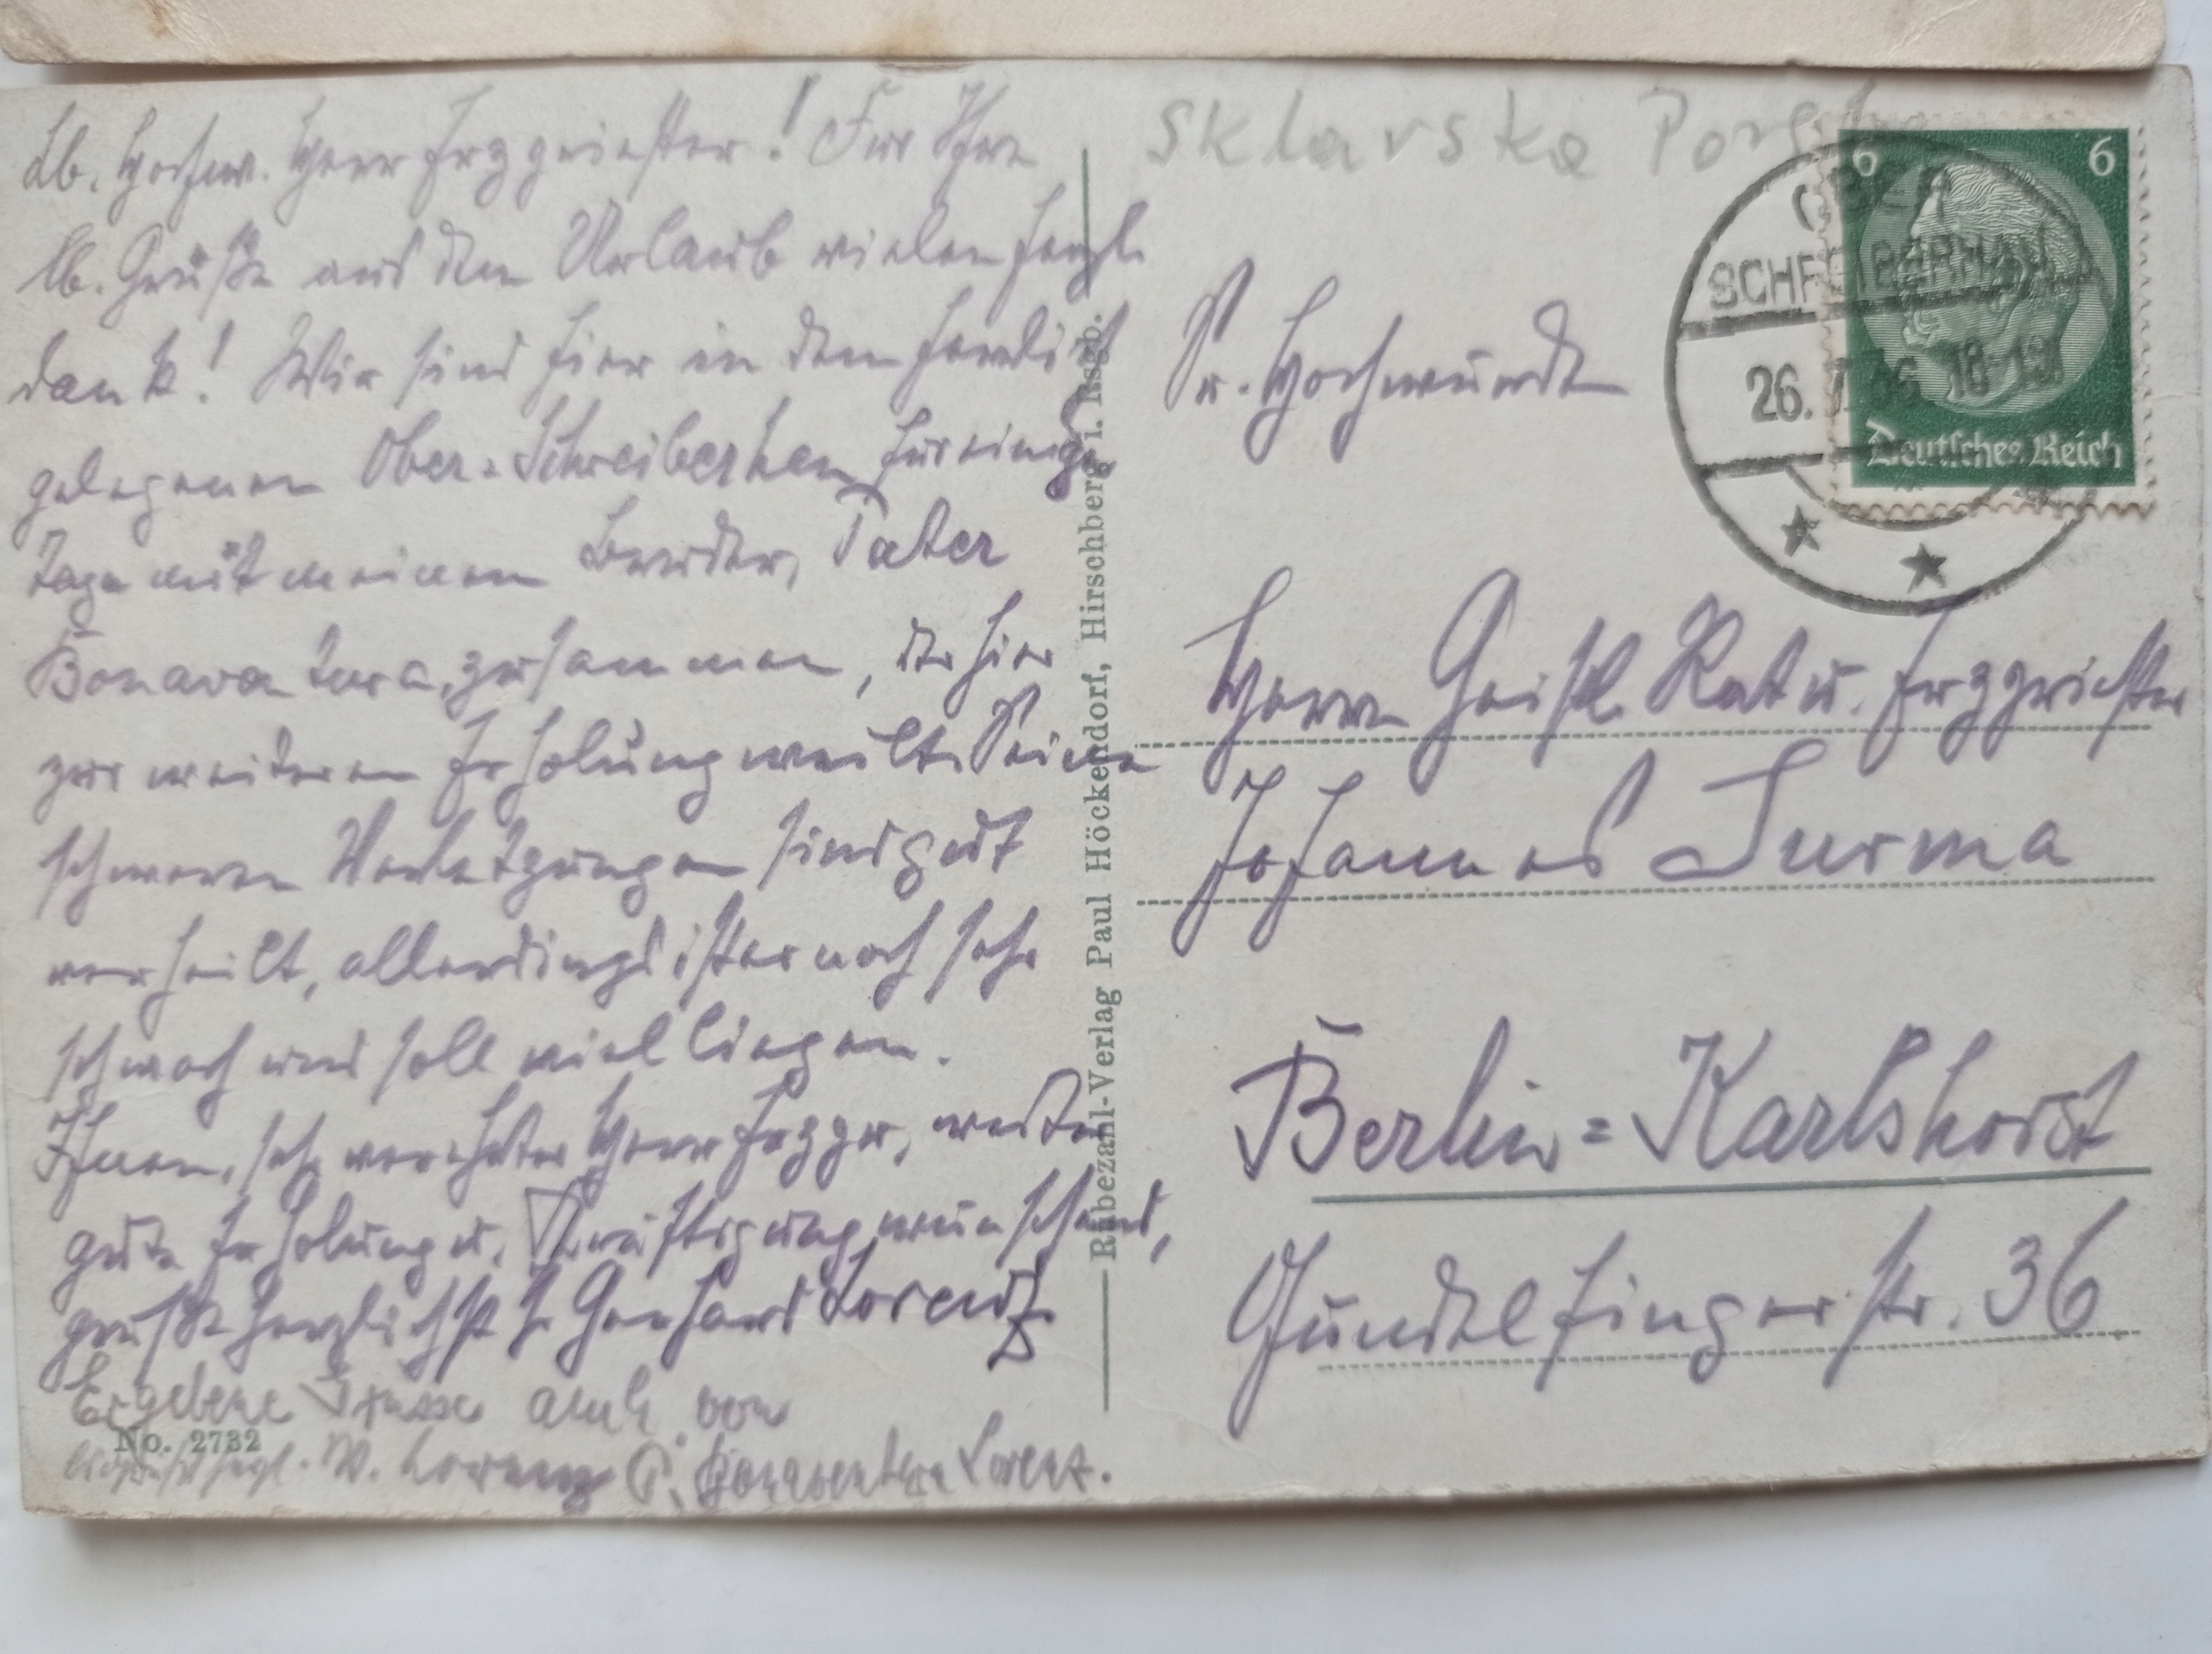 Lb. Hochw. Herr Erzpriester! Für Ihre
lb. Grüße aus dem Urlaub vielen herzl.
Dank! Wir sind hier in dem herrlich
gelegenen Ober-Schreiberhau für einige
Tage mit meinem Bruder, Pater
Bonaventura, zusammen, der hier
zur weiteren Erholung weilt. Seine
schweren Verletzungen sind gut
verheilt, allerdings ist er noch sehr
schwach und soll viel liegen.
Ihnen, sehr verehrter Herr Erzpr., weiter
gute Erholung u. Kräftigung wünschend,
grüßt herzlichst Ihr Gerhard Lorenz
Ergebene Grüsse auch von
herzl. W. Lorenz P. Bonaventura Lorenz.
No. 2732
Rübezahl-Verlag Paul Höckendorf, Hirschberg i. Rsgb.
Sklarska Poręba
6 6
Deutsches Reich
OBER
SCHREIBERHAU
26.7.36 18-19
Sr. Hochwürden
Herrn Geistl. Rat u. Erzpriester
Johannes Surma
Berlin-Karlshorst
Gundelfingerstr. 36